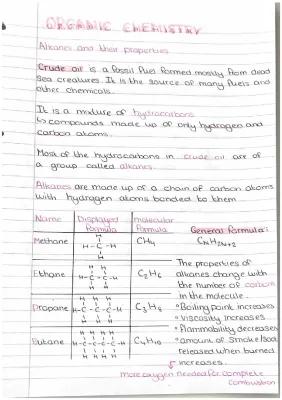 ORGANIC CHEMISTRY
Alkanes and their properties
Crude oil is a fossil fuel formed mostly from dead
sea creatures. It is the source of many fuels and
other chemicals.
It is a mixture of hydrocarbons
↳ compounds made up of only hydrogen and
carbon atoms.
Most of the hydrocarbons in crude oil are of
a group called alkanes.
Alkanes are made up of a chain of carbon atoms
with hydrogen atoms bonded to them
Name Displayed formula molecular formula General formula:
CnH2n+2
Methane
H
H-C-H
H
CH4
Ethane
H H
H-C-C-H
H H
C2H6
Propane
H H H
H-C-C-C-H
H H H
C3H8
Butane
H H H H
H-C-C-C-C-H
H H H H
C4H10
The properties of
alkanes change with
the number of carbon
in the molecule.
• Boiling point increases
• Viscosity increases
• Flammability decreases
• amount of smoke/soot
released when burned
increases.
more oxygen needed for complete
combustion